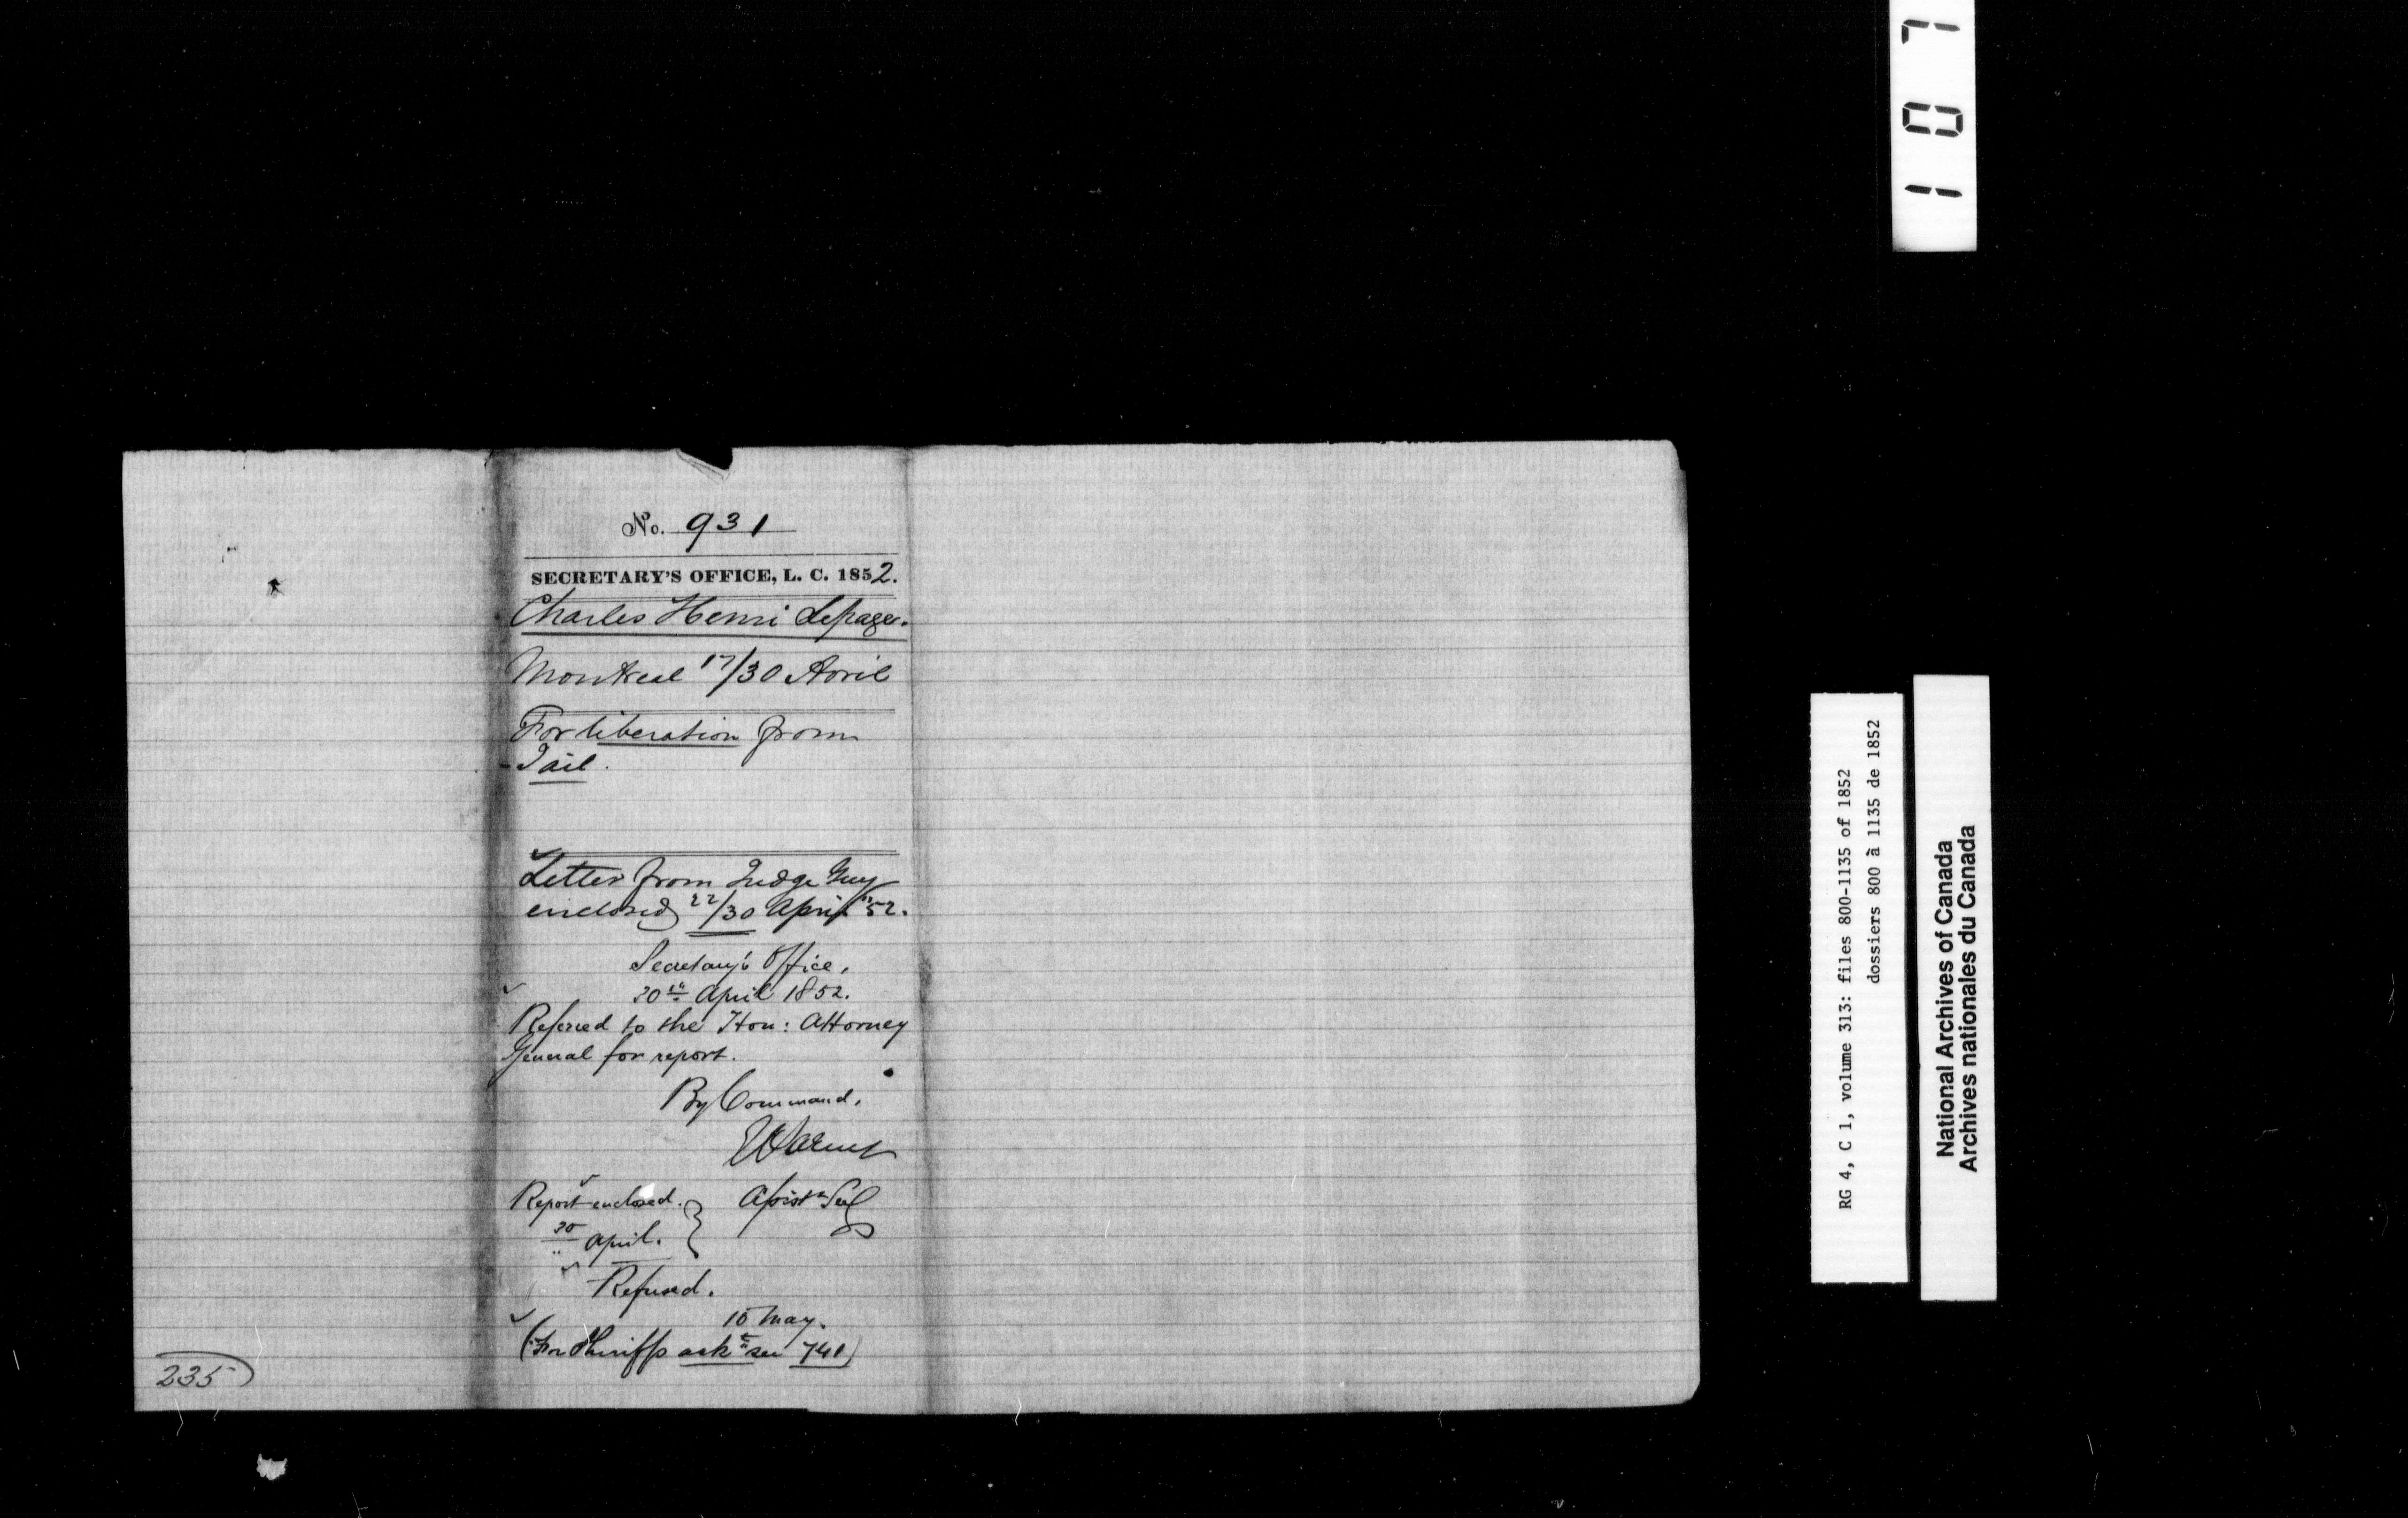 No. 931
SECRETARY'S OFFICE, L. C. 1852.
Charles Henri Lepage.
Montreal 17/30 Avril
For liberation from
Jail.
Letter from Judge Guy
enclosed 22/30 April '52.
Secretary's Office,
30th April 1852.
Referred to the Hon: Attorney
General for report.
By Command.
Assist Sec
Report enclosed.
30 April.
Refused.
10 May.
(For Sheriffs ack see 741)
235
107
RG 4, C 1, volume 313: files 800-1135 of 1852
dossiers 800 à 1135 de 1852
National Archives of Canada
Archives nationales du Canada